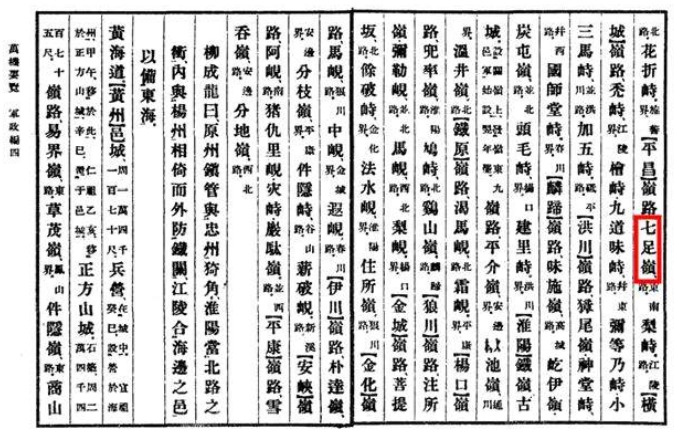 北路 花折峙 旌善界【平昌】嶺路七足嶺 東南路 梨峙 江陵界【橫
城】嶺路禿峙 江陵界 檜峙九道味峙 幷東 彌等乃峙小
三馬峙 並洪川路 加五峙 砥平界【洪川】嶺路獐尾嶺神堂峙
幷西 國師堂峙 春川界【麟蹄】嶺路味施嶺 高城路 屹伊嶺
炭屯嶺 並北路 頭毛峙 楊口界 建里峙 洪川界【淮陽】鐵嶺古
城 嶺路平介嶺 安邊界 以池嶺 通川
界 溫井嶺 北路【鐵原】嶺路渴馬峴 北路 霜峴 平康界【楊口】嶺
路兜率嶺 淮陽路 鳩峙 北路 鷄山嶺 麟蹄路【狼川】嶺路注所
嶺彌勒峴 並北路 馬峴 西北路 梨峴 楊口界【金城】嶺路菩提
坂 北路 餘破峙 金化界 法水峴 淮陽界 住所嶺 狼川路【金化】嶺
路馬峴 狼川路 中峴 金城路 遐峴 春川界【伊川】嶺路朴達嶺
安邊界 分枝嶺 平康界 件隱峙 谷山界 薪破峴 新溪路【安峽】嶺
路阿峴 南路 猪仇里峴灾峙巖駄嶺 並西路【平康】嶺路雪
吞嶺 安邊路 分地嶺 西北路
柳成龍曰原州鎭管與忠州犄角淮陽當北路之
衝內與楊州相倚而外防鐵關江陵合海邊之邑
以備東海
黃海道【黃州】邑城 周一萬四千一百七十尺 兵營 在城中 宣祖癸巳設營於海
州甲午移於此 仁祖乙亥移於正方山城辛巳還于邑城 正方山城 石築周二萬四千四
百七十五尺 嶺路易界嶺 東路 草茂嶺 鳳山界 件隱嶺 東路 蒿山
萬機要覽 軍政編四